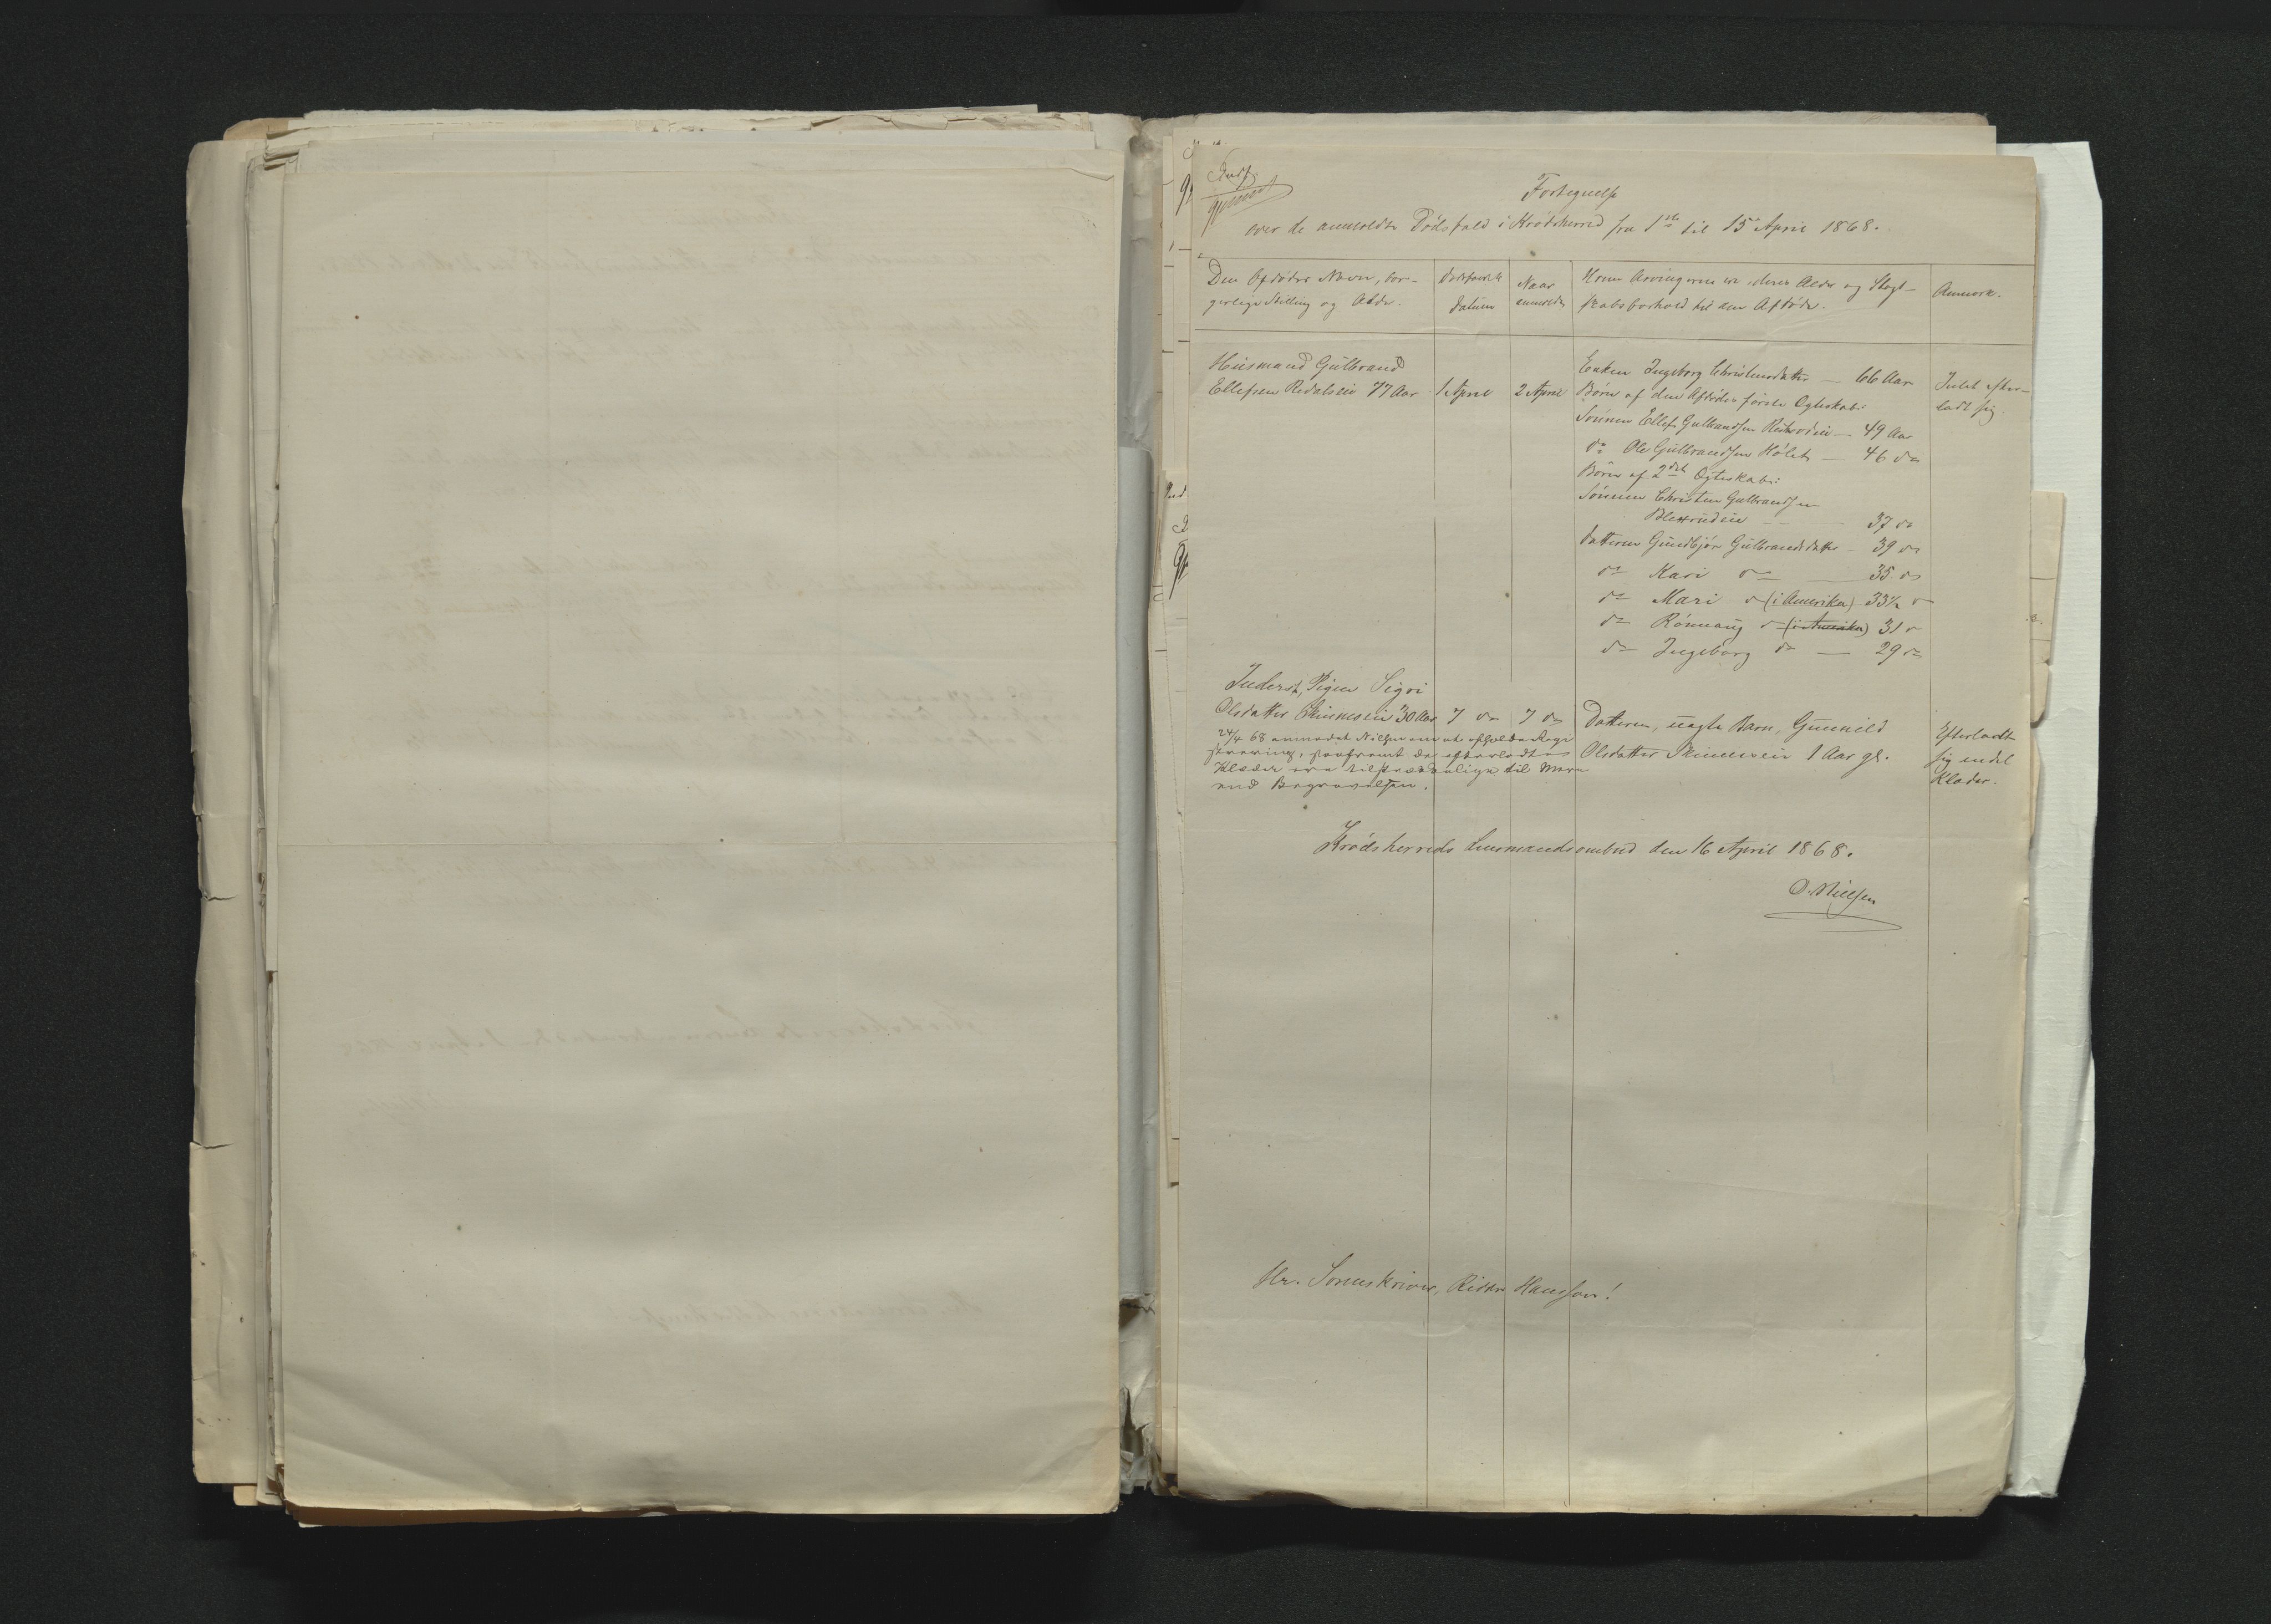 Indf.
Fortegnelse
over de anmeldte Dødsfald i Krødsherred fra 1ste til 15 April 1868.
Den Afdødes Navn, bor-
gerlige Stilling og Alder.
Dødsfaldets
Datum
Naar
anmeldt
Hvem Arvingerne er, deres Alder og Slægt-
skabsforhold til den Afdøde.
Anmærk.
Huusmand Gulbrand
Ellefsen Redalseie 77 Aar
1 April
2 April
Enken Ingeborg Christensdatter — 66 Aar
Børn af den Afdødes første Ægteskab:
Sønnen Ellef Gulbrandsen — 49 Aar
do Ole Gulbrandsen — 46 do
Børn af 2det Ægteskab:
Sønnen Christen Gulbrandsen
37 do
Datteren Gundbjør Gulbrandsdatter — 39 do
do Kari do — 35 do
do Mari do (i Amerika) 33½ do
do Rønnaug do (i Amerika) 31 do
do Ingeborg do — 29 do
Intet efter-
ladt sig.
Inderst, Pigen Sigri
Olsdatter Skinneseie 30 Aar
7 do
7 do
Datteren, uægte Barn, Gunnild
Olsdatter Skinneseie 1 Aar gl.
Efterladt
sig endel
Klæder.
24/4 68 anmodet Nielsen om at afholde Regi
strering, saafremt de efterladte
Klæder ere tilstrækkelige til mere
end Begravelsen.
Krødsherreds Lensmandsombud den 16 April 1868.
O. Nielsen
Hr. Sorenskriver, Ridder Hansson!